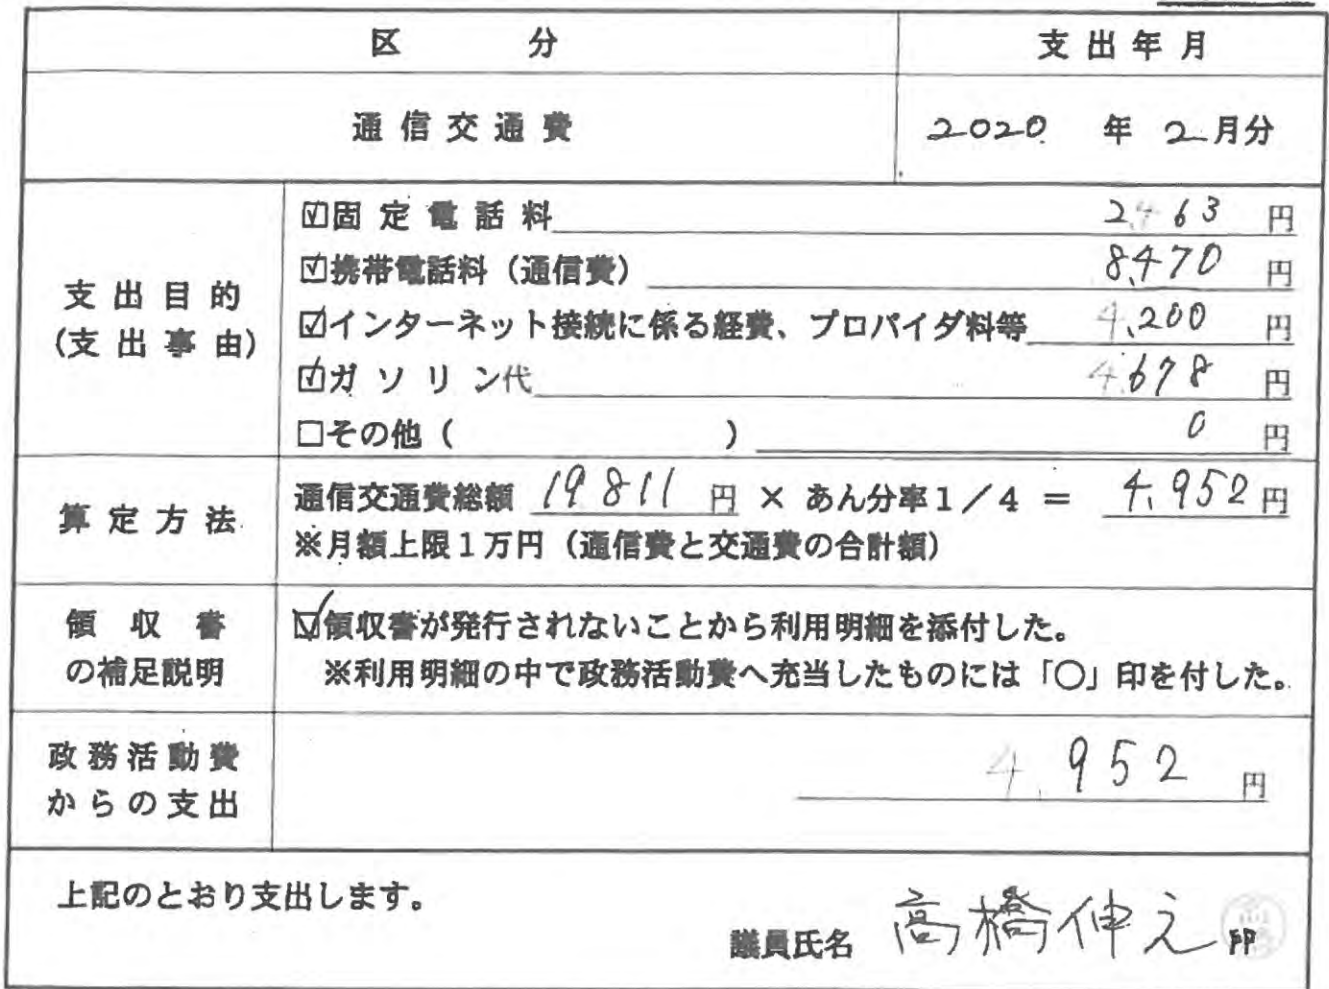 区 分 支出年月
通信交通費 2020 年 2月分
支出目的
(支出事由)
☑固定電話料 2,463 円
☑携帯電話料（通信費） 8,470 円
☑インターネット接続に係る経費、プロバイダ料等 4,200 円
☑ガソリン代 4,678 円
□その他（ ） 0 円
算定方法
通信交通費総額 19,811 円 × あん分率1／4 = 4,952円
※月額上限1万円（通信費と交通費の合計額）
領収書
の補足説明
☑領収書が発行されないことから利用明細を添付した。
※利用明細の中で政務活動費へ充当したものには「○」印を付した。
政務活動費
からの支出
4,952 円
上記のとおり支出します。
議員氏名 高橋伸之 印